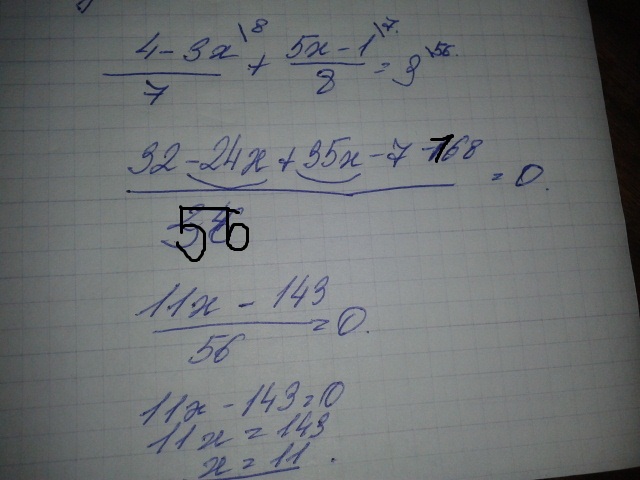 (4 - 3x)/7 \8 + (5x - 1)/8 \7 = 3 \56
(32 - 24x + 35x - 7 - 168)/56 = 0.
(11x - 143)/56 = 0.
11x - 143 = 0
11x = 143
x = 11.